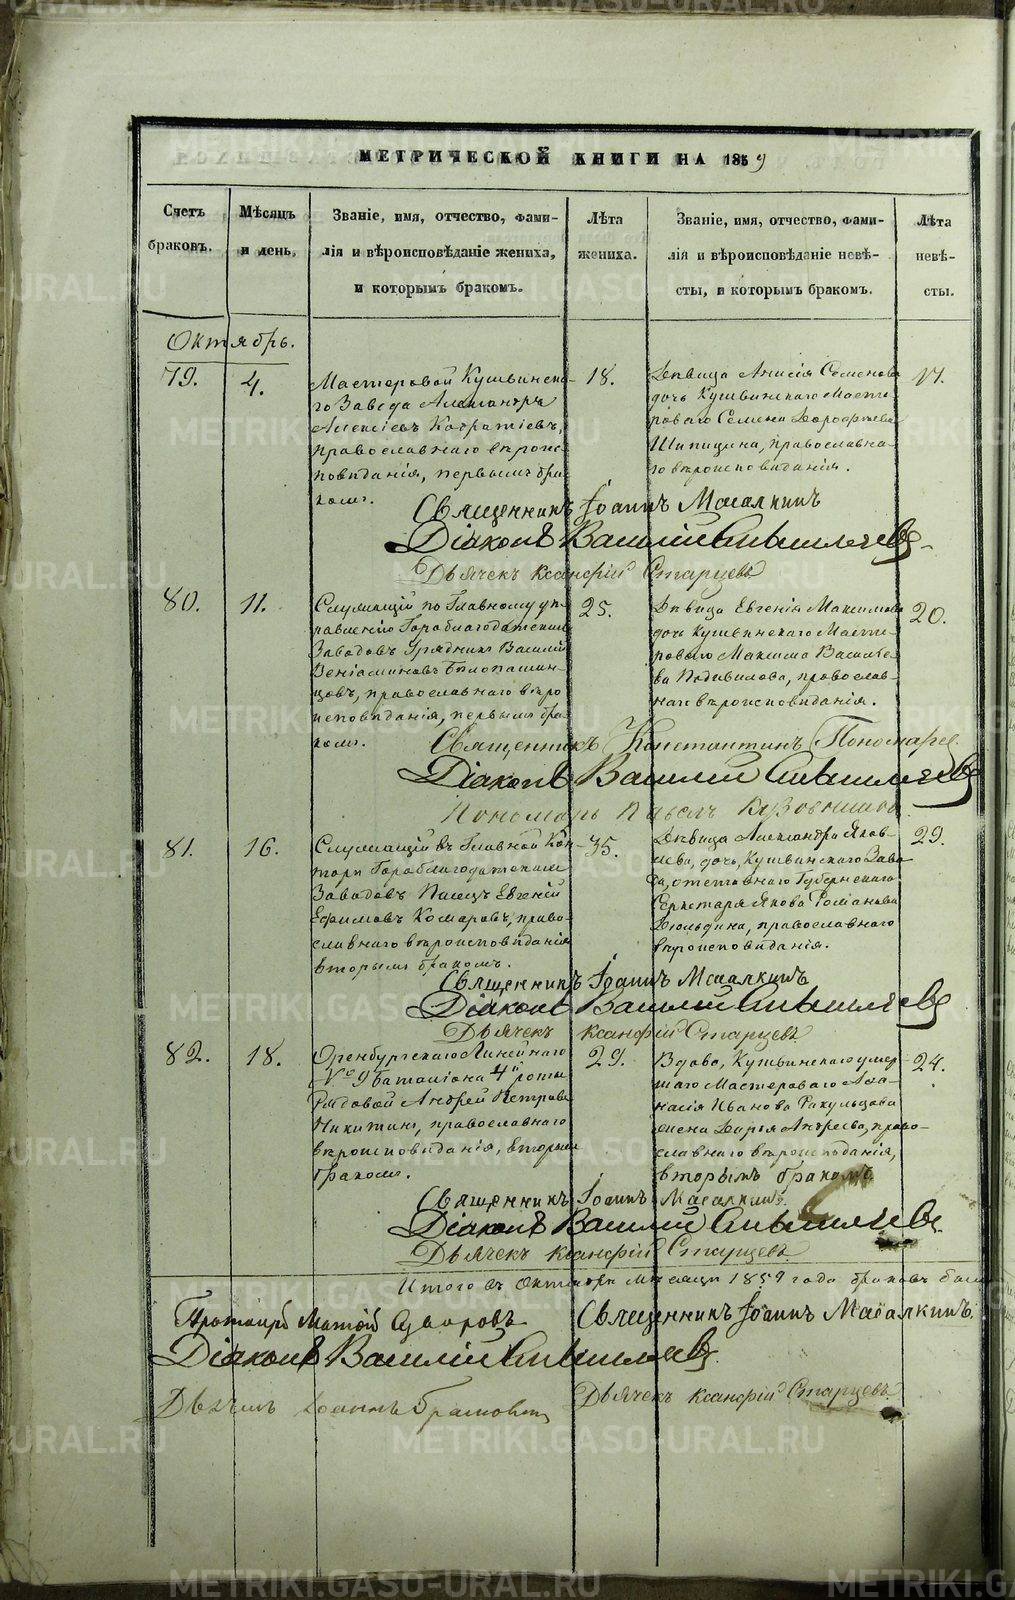 МЕТРИЧЕСКОЙ КНИГИ НА 1859
Счетъ браковъ.
Мѣсяцъ и день.
Званіе, имя, отчество, фами-
лія и вѣроисповѣданіе жениха,
и которымъ бракомъ.
Лѣта жениха.
Званіе, имя, отчество, фами-
лія и вѣроисповѣданіе невѣ-
сты, и которымъ бракомъ.
Лѣта невѣ-
сты.
Октябрь.
79.
4.
Мастеровой Кушвинска-
го Завода Александръ
Алексіевъ Кондратіевъ,
православнаго вѣроис-
повѣданія, первымъ бра-
комъ.
18.
Дѣвица Анисія Семенова
дочь Кушвинскаго Масте-
роваго Семена Дорофѣева
Шипицина, православна-
го вѣроисповѣданія.
17.
Священникъ Іоаннъ Масалкинъ
Діаконъ Василій
Дьячекъ Ксанфій Старцевъ
80.
11.
Служащій по Главному уп-
равленію Гороблагодатскихъ
Заводовъ Урядникъ Василій
Веніаминовъ Бѣлопашин-
цовъ, православнаго вѣро
исповѣданія, первымъ бра-
комъ.
25.
Дѣвица Евгенія Максимова
дочь Кушвинскаго Масте-
роваго Максима Василье-
ва Подвилова, православ-
наго вѣроисповѣданія.
20.
Священникъ Константинъ Пономарев
Діаконъ Василій
Пономарь Павелъ
81.
16.
Служащій въ Главной Кон-
торѣ Гороблагодатскихъ
Заводовъ Писецъ Евгеній
Ефимовъ Комаровъ, право-
славнаго вѣроисповѣданія
вторымъ бракомъ.
35.
Дѣвица Александра Яков-
лева, дочь, Кушвинскаго Заво
да, отставнаго Губернскаго
Секретаря Якова Романова
Дюльдина, православнаго
вѣроисповѣданія.
29.
Священникъ Іоаннъ Масалкинъ
Діаконъ Василій
Дьячекъ Ксанфій Старцевъ
82.
18.
Оренбургскаго Линейнаго
№ 9 Баталіона 4й роты
Рядовой Андрей Петровъ
Никитинъ, православнаго
вѣроисповѣданія, вторымъ
бракомъ.
29.
Вдова, Кушвинскаго умер-
шаго Мастероваго Афа-
насія Иванова Ракульцова
жена Дарья Андреева, право-
славнаго вѣроисповѣданія,
вторымъ бракомъ
24.
Священникъ Іоаннъ Масалкинъ.
Діаконъ Василій
Дьячекъ Ксанфій Старцевъ
Итого въ Октябрѣ мѣсяцѣ 1859 года браковъ было
Протоіерей Матѳій
Священникъ Іоаннъ Масалкинъ.
Діаконъ Василій
Дьячекъ Ксанфій Старцевъ
METRIKI.GASO-URAL.RU